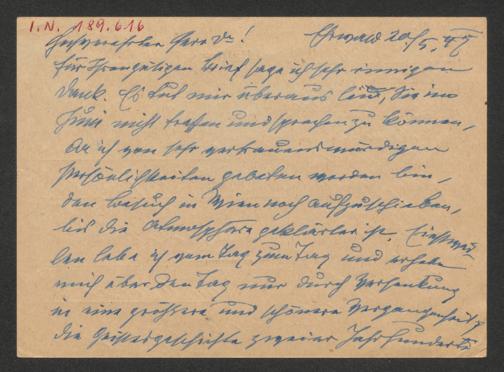 I. N. 189.616
Ehrwald 20./5. 47
Sehr verehrter Herr Dr!
Für Ihren gütigen Brief sage ich sehr innigen
Dank. Es tut mir überaus leid, Sie im
Juni nicht treffen und sprechen zu können,
da ich von sehr vertrauenswürdigen
Persönlichkeiten gebeten worden bin,
den Besuch in Wien noch aufzuschieben,
bis die Atmosphäre geklärter ist. Einstwei-
len lebe ich von Tag zum Tag und erhebe
mich über den Tag nur durch Versenkung
in eine größere und schönere Vergangenheit,
die Geistesgeschichte zweier Jahrhunderte